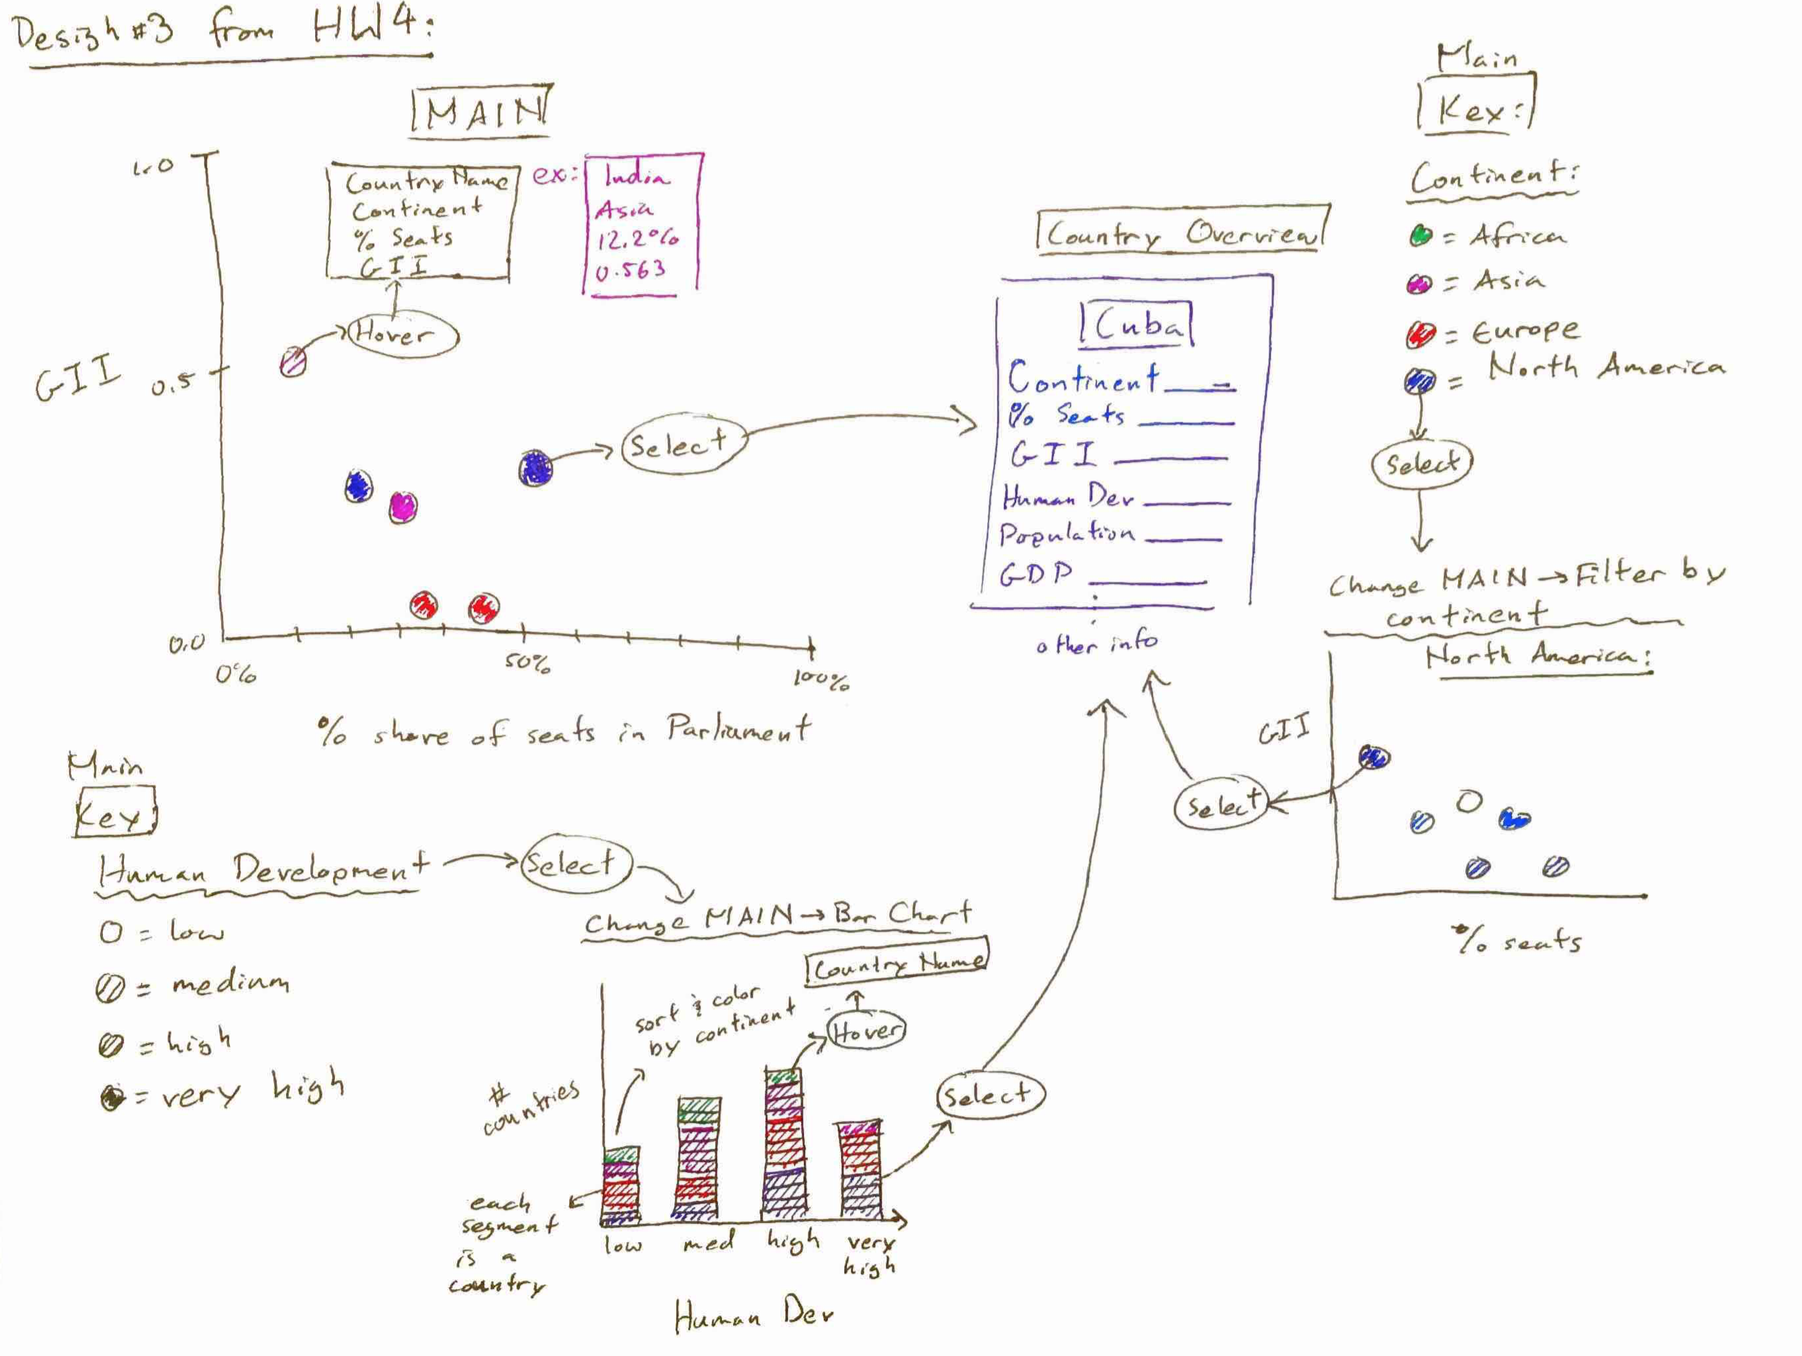 Design #3 from HW4:
MAIN
1.0
Country Name
Continent
% Seats
GII
ex:
India
Asia
12.2%
0.563
Hover
GII
0.5
Select
0.0
0%
50%
100%
% share of seats in Parliament
Country Overview
Cuba
Continent
% Seats
GII
Human Dev
Population
GDP
other info
Main
Key:
Continent:
= Africa
= Asia
= Europe
= North America
Select
Change MAIN → Filter by
continent
North America:
GII
Select
% seats
Main
Key
Human Development
Select
= low
= medium
= high
= very high
Change MAIN → Bar Chart
Country Name
sort & color
by continent
Hover
#
countries
Select
each
segment
is a
country
low
med
high
very
high
Human Dev